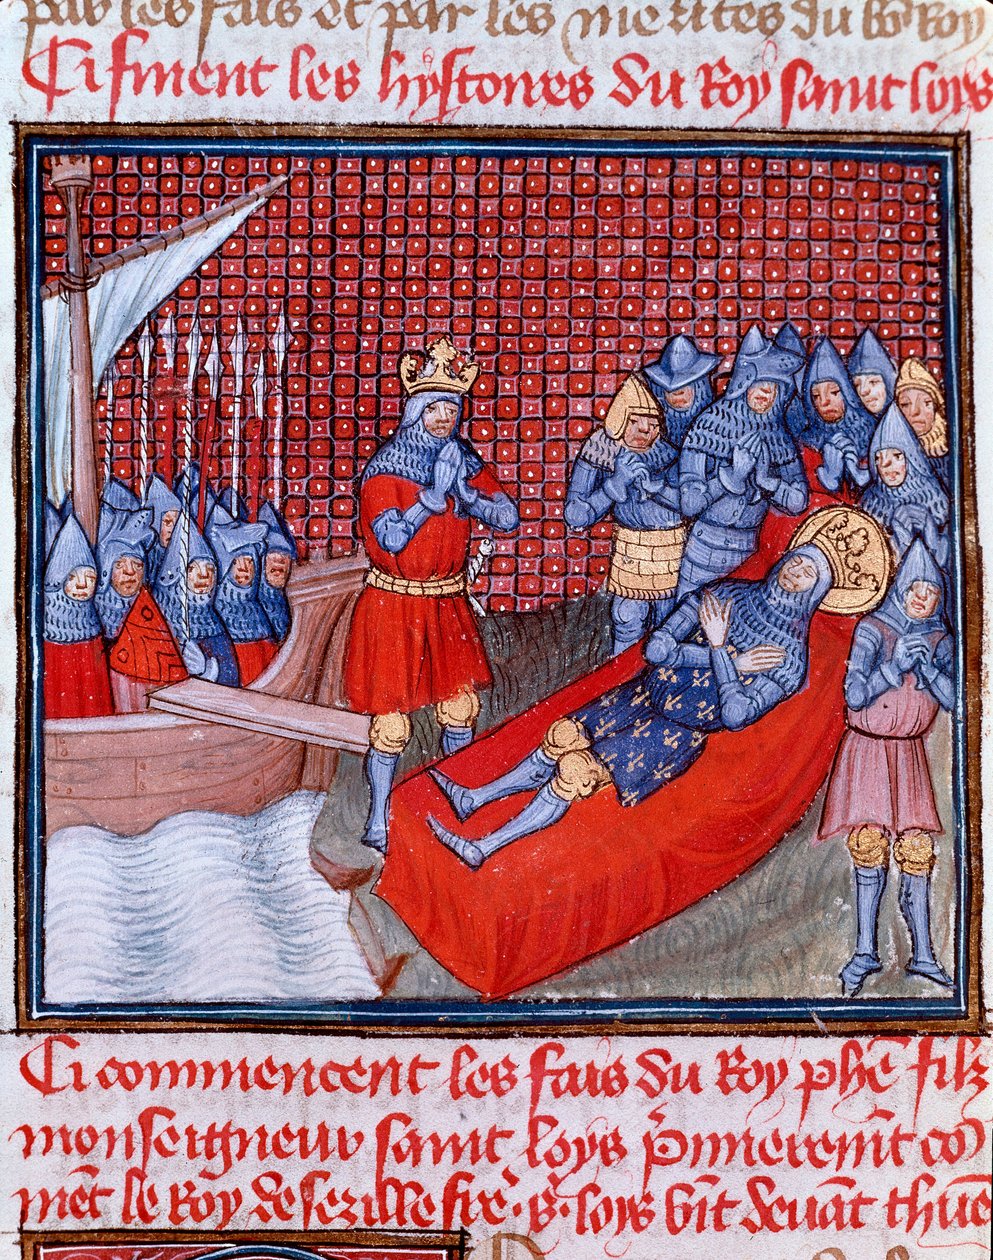 par les fais et par les merites du bō Roy
Ci finent les hystoires du Roy saint loys
Ci commencent les fais du Roy phē filz
monseigneur saint loys p̄mierem̄t cō
mēt le Roy de sezille frē s. loys vīt devāt thūe